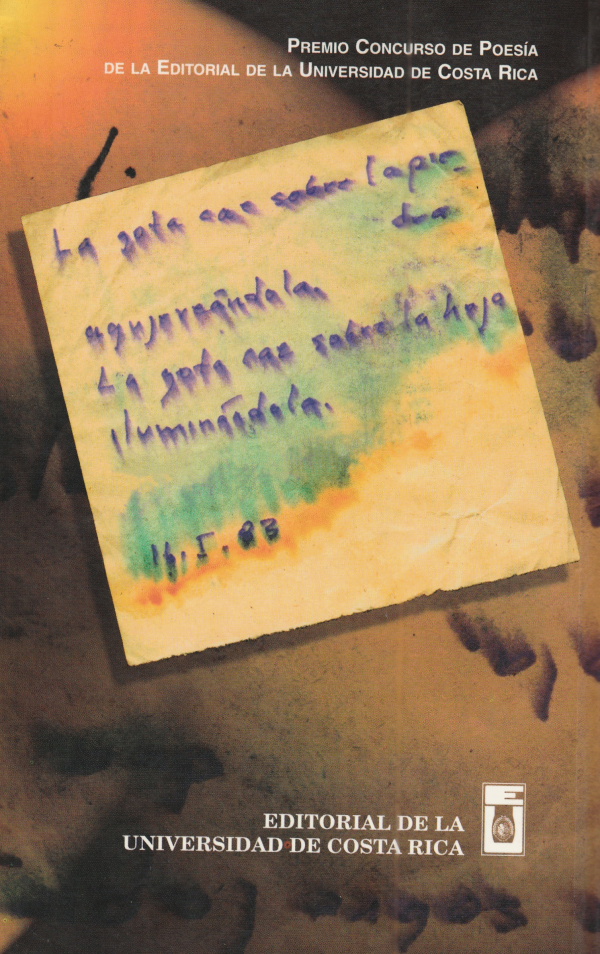 PREMIO CONCURSO DE POESÍA
DE LA EDITORIAL DE LA UNIVERSIDAD DE COSTA RICA
La gota cae sobre la pie-
dra
agujereándola.
La gota cae sobre la hoja
iluminándola.
16.I.83
EDITORIAL DE LA
UNIVERSIDAD DE COSTA RICA
E